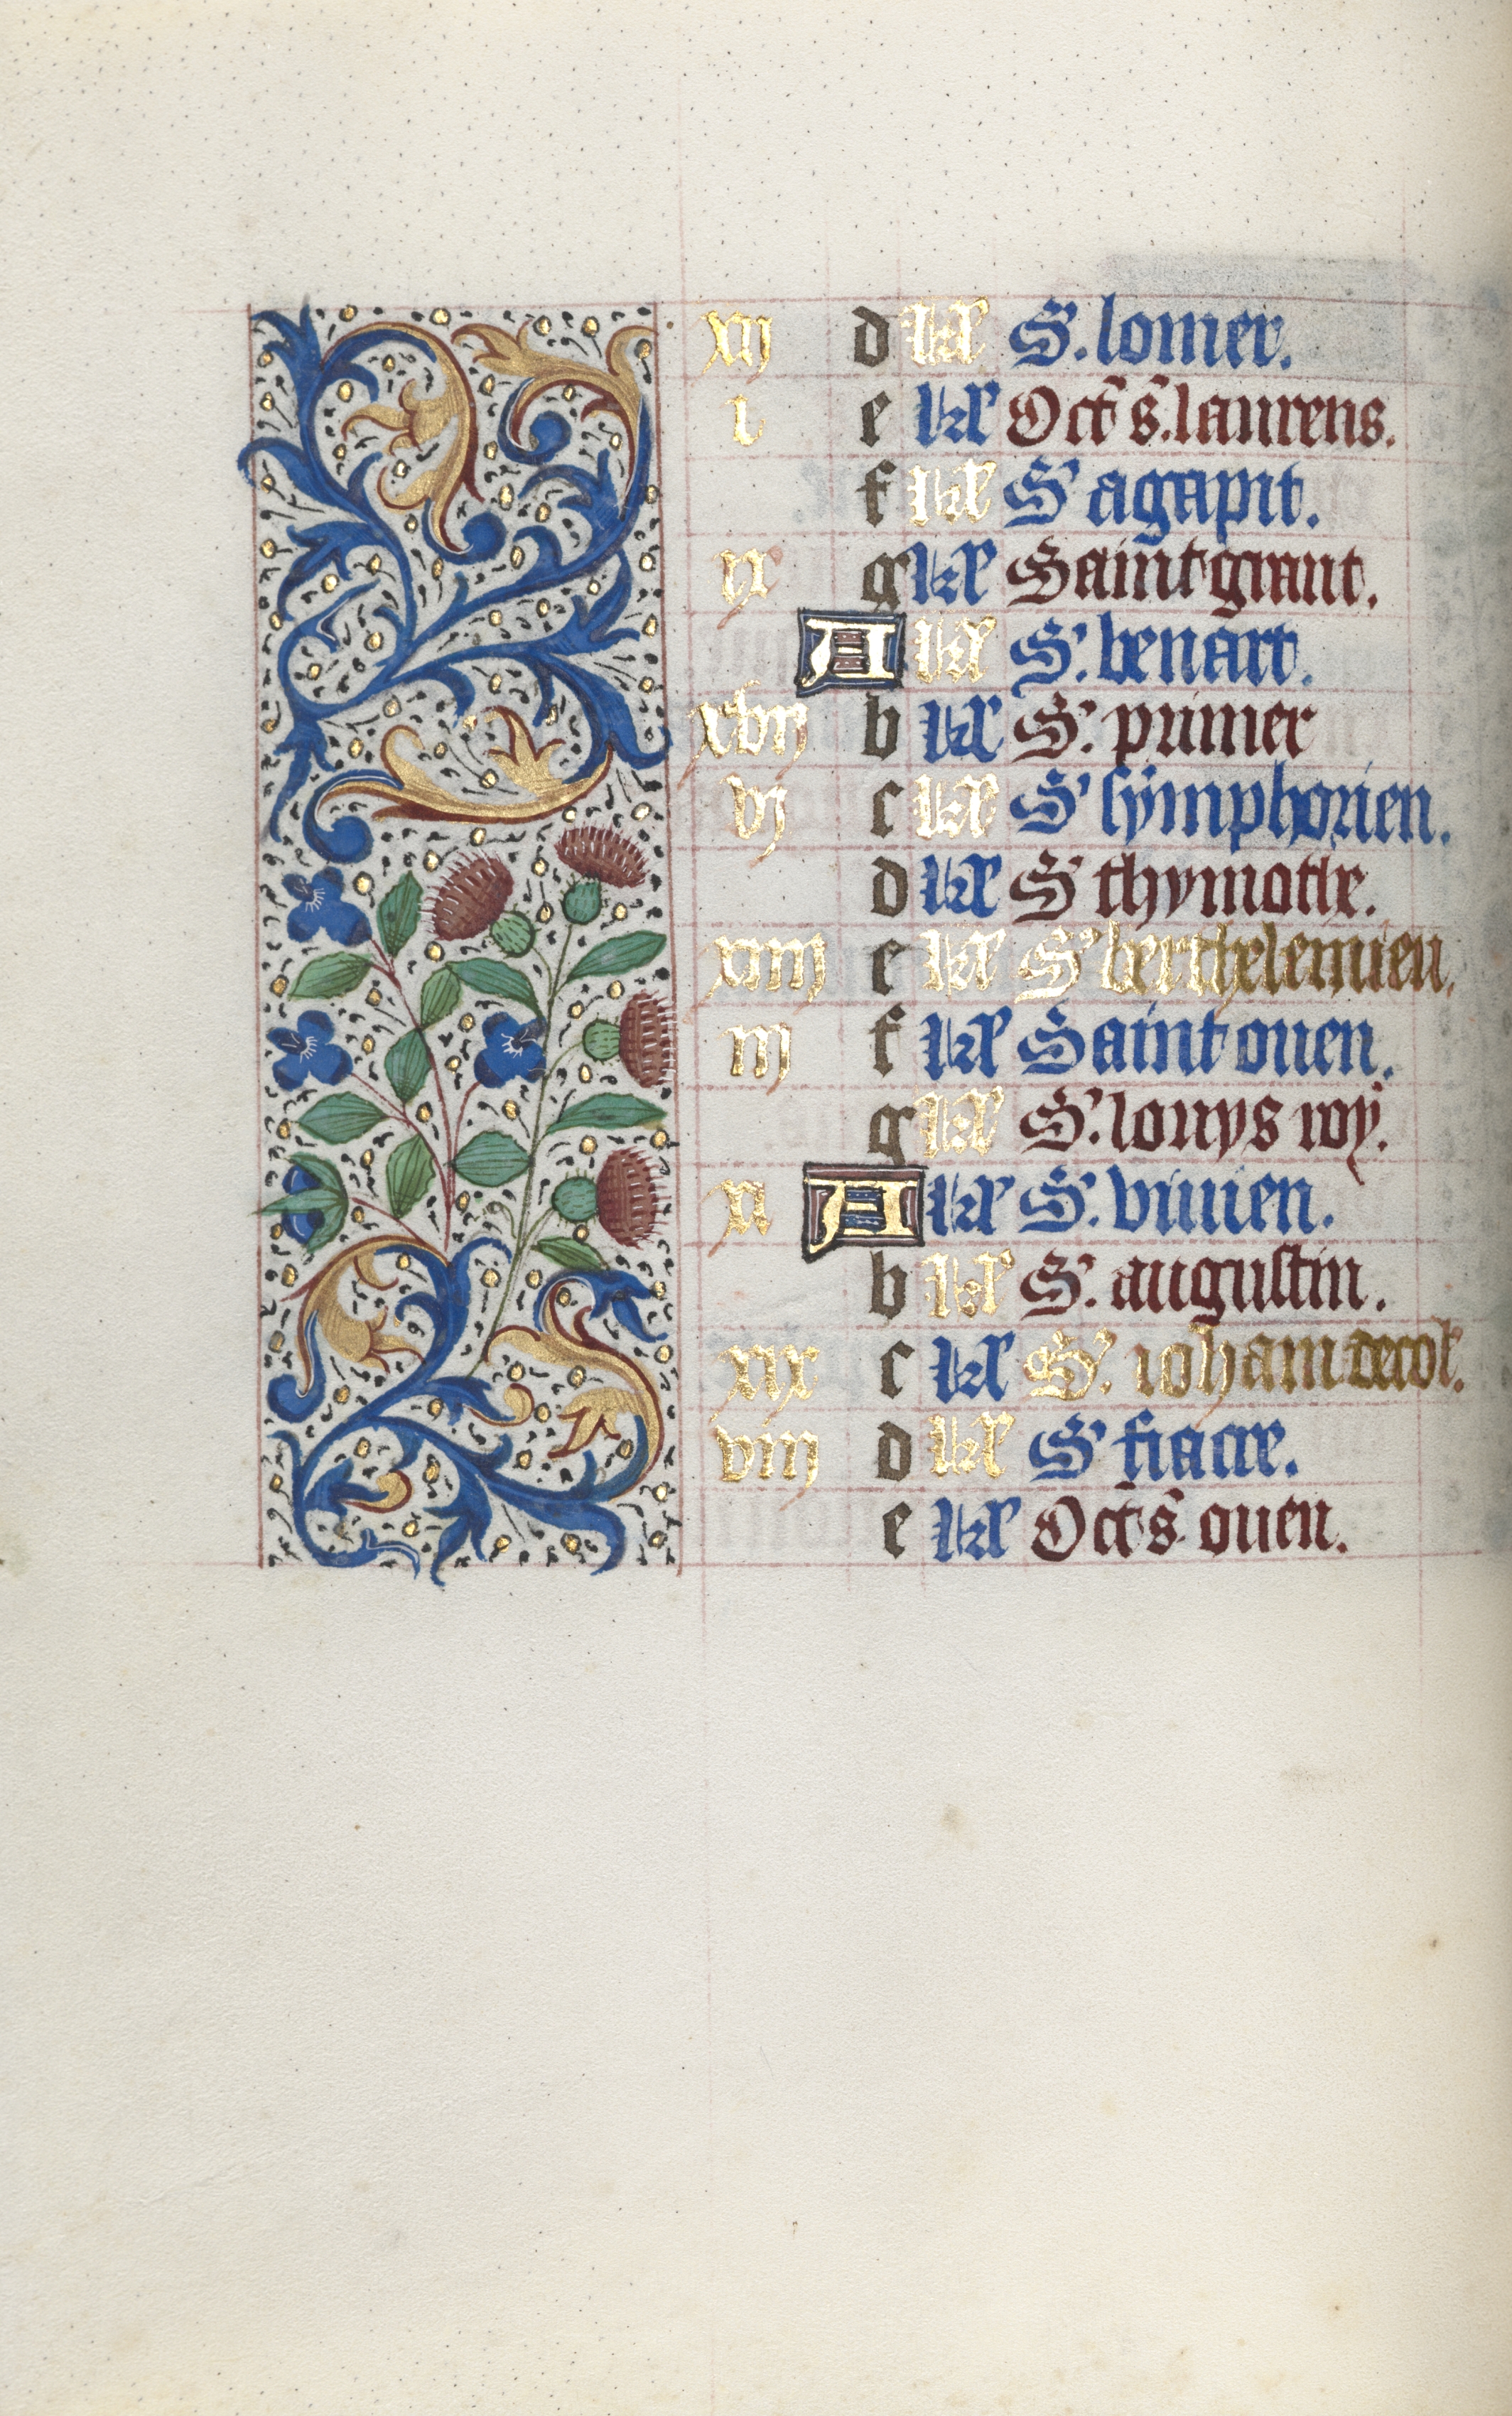 xij d kł S. lomer.
i e kł Oct s. laurens.
f kł S' agapit.
ix g kł Saint grant.
A kł S. benart.
xvij b kł S. primer
vj c kł S' symphorien.
d kł S' thymothe.
xiiij e kł S' berthelemieu.
iij f kł Saint ouen.
g kł S. louys roy.
xi A kł S. vivien.
b kł S. augustin.
xix c kł S. iohan decol.
viij d kł S' fiacre.
e kł Oct s. ouen.